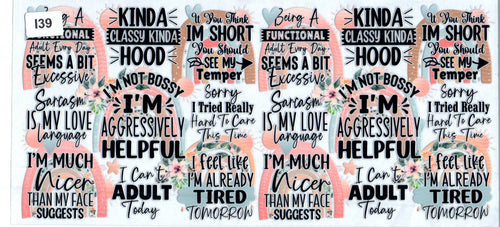 139
Being A
FUNCTIONAL
Adult Every Day
SEEMS A BIT
Excessive
KINDA
CLASSY KINDA
HOOD
If You Think
IM SHORT
You Should
SEE MY
Temper
Sarcasm
IS MY LOVE
language
I'M NOT BOSSY
I'M
AGGRESSIVELY
HELPFUL
Sorry
I Tried Really
Hard To Care
This Time
I'M MUCH
Nicer
THAN MY FACE
SUGGESTS
I Can't
ADULT
Today
I feel like
I'M ALREADY
TIRED
TOMORROW
Being A
FUNCTIONAL
Adult Every Day
SEEMS A BIT
Excessive
KINDA
CLASSY KINDA
HOOD
If You Think
IM SHORT
You Should
SEE MY
Temper
Sarcasm
IS MY LOVE
language
I'M NOT BOSSY
I'M
AGGRESSIVELY
HELPFUL
Sorry
I Tried Really
Hard To Care
This Time
I'M MUCH
Nicer
THAN MY FACE
SUGGESTS
I Can't
ADULT
Today
I feel like
I'M ALREADY
TIRED
TOMORROW